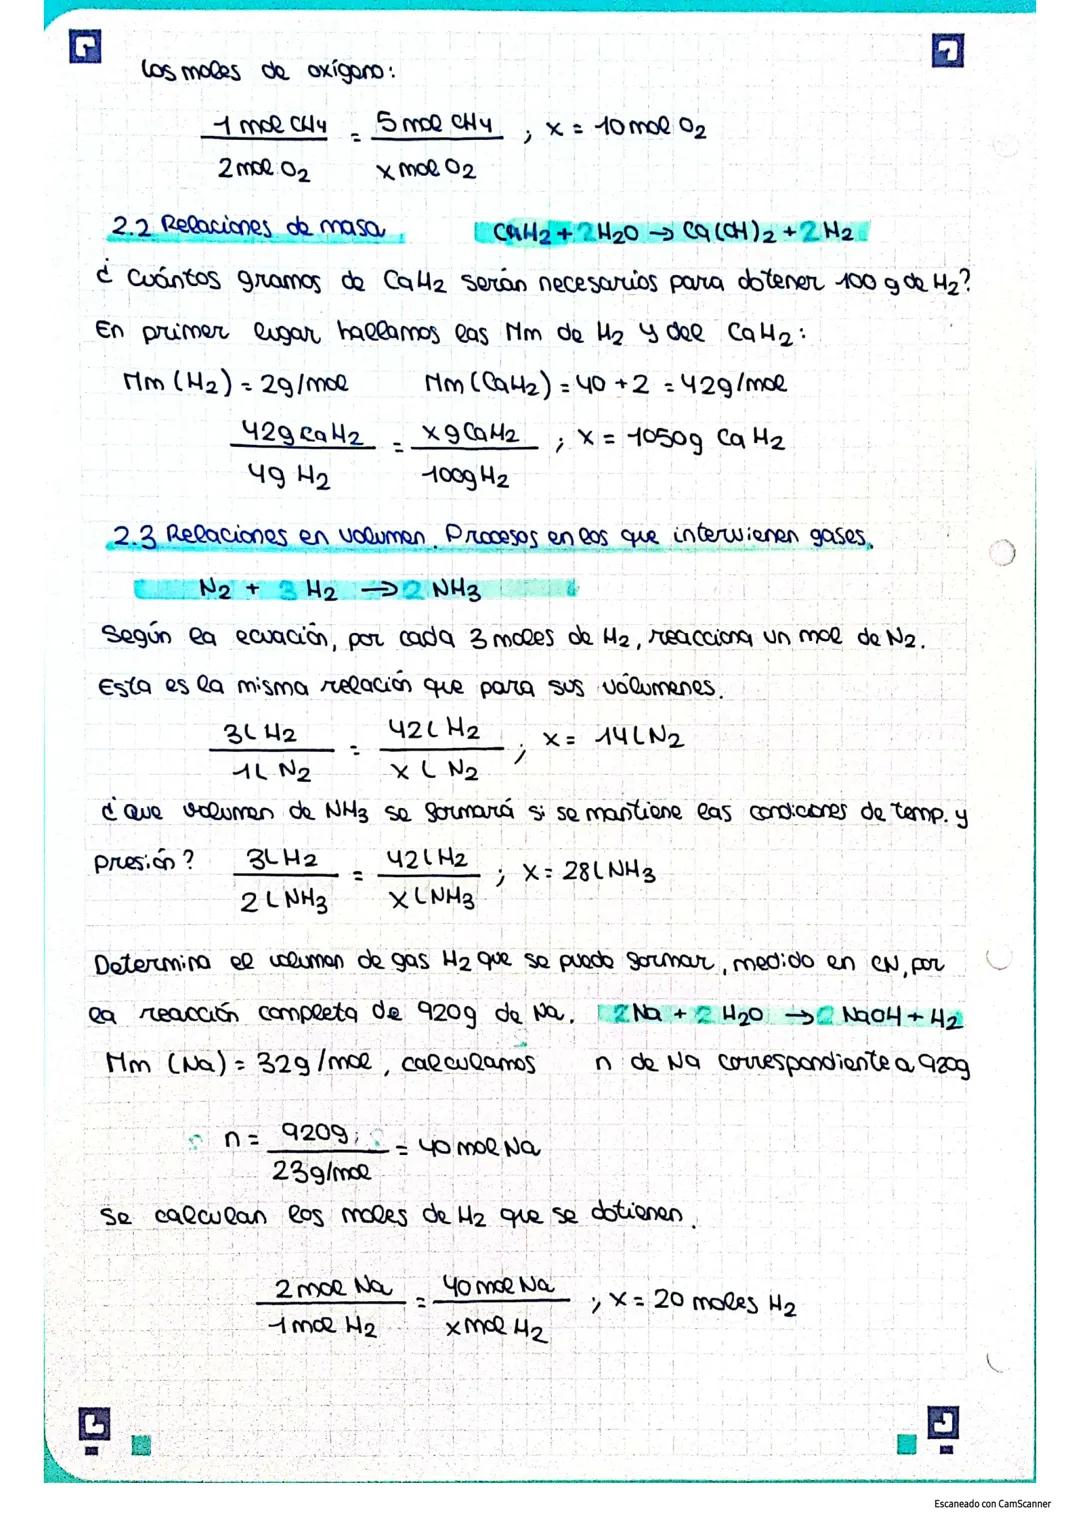 los moles de oxígeno:
1 mol CH4 / 2 mol O2 = 5 mol CH4 / x mol O2 ; x = 10 mol O2
2.2 Relaciones de masa CaH2 + 2 H2O → Ca(OH)2 + 2 H2
¿Cuántos gramos de CaH2 serán necesarios para obtener 100 g de H2?
En primer lugar hallamos las Mm de H2 y del CaH2:
Mm (H2) = 2g/mol Mm (CaH2) = 40 + 2 = 42g/mol
42g CaH2 / 4g H2 = x g CaH2 / 100g H2 ; x = 1050g CaH2
2.3 Relaciones en volumen. Procesos en los que intervienen gases.
N2 + 3 H2 → 2 NH3
Según la ecuación, por cada 3 moles de H2, reacciona un mol de N2.
Esta es la misma relación que para sus volúmenes.
3L H2 / 1L N2 = 42L H2 / x L N2 ; x = 14L N2
¿Que volumen de NH3 se formará si se mantiene las condiciones de temp. y
presión? 3L H2 / 2L NH3 = 42L H2 / x L NH3 ; x = 28L NH3
Determina el volumen de gas H2 que se puede formar, medido en CN, por
la reacción completa de 920g de Na. 2 Na + 2 H2O → 2 NaOH + H2
Mm (Na) = 32g/mol, calculamos n de Na correspondiente a 920g
n = 920g; / 23g/mol = 40 mol Na
Se calculan los moles de H2 que se obtienen.
2 mol Na / 1 mol H2 = 40 mol Na / x mol H2 ; x = 20 moles H2
Escaneado con CamScanner